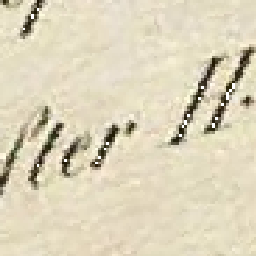 fter H.